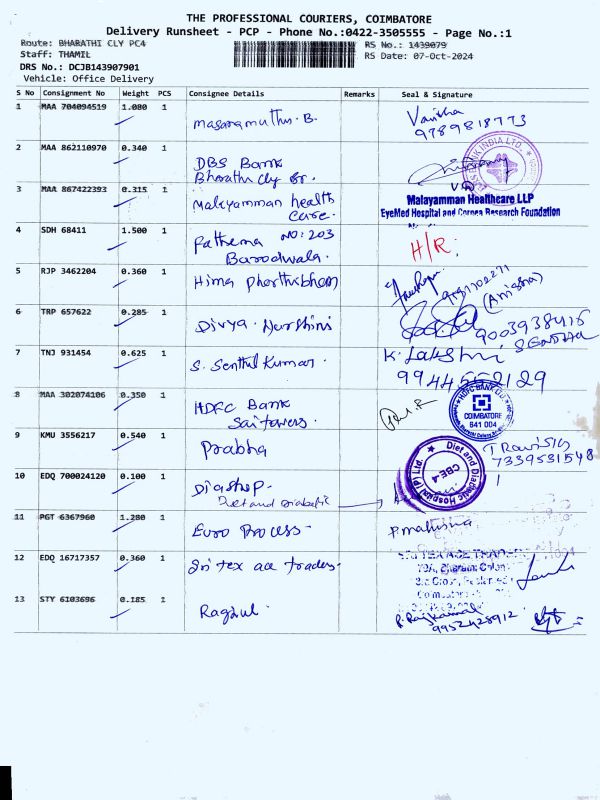 THE PROFESSIONAL COURIERS, COIMBATORE
Delivery Runsheet - PCP - Phone No.:0422-3505555 - Page No.:1
Route: BHARATHI CLY PC4 RS No.: 1439079
Staff: THAMIL RS Date: 07-Oct-2024
DRS No.: DCJB143907901
Vehicle: Office Delivery
S No Consignment No Weight PCS Consignee Details Remarks Seal & Signature
1 MAA 704094519 1.080 1 B. Vanitha
9789818773
2 MAA 862110970 0.340 1 DBS Bank
Bharathi Cly Br.
3 MAA 867422393 0.315 1 Malayamman health
care. Malayamman Healthcare LLP
EyeMed Hospital and Cornea Research Foundation
4 SDH 68411 1.500 1 Fathema NO: 203
Barodwala. H/R.
5 RJP 3462204 0.360 1 Hima
(Anisha)
6 TRP 657622 0.285 1 Divya. Dharshini 9003938416
7 TNJ 931454 0.625 1 S. Senthil Kumar. K. Lakshmi
9944552129
8 MAA 302074106 0.350 1 HDFC Bank
Sai towers. HDFC BANK LTD
COIMBATORE
641 004
9 KMU 3556217 0.540 1 Prabha 7339531548
10 EDQ 700024120 0.100 1
Diet and Diabetic Diet and Diabetic Hospital (P) Ltd.
CBE-4
11 PGT 6367960 1.280 1 Euro Process.
12 EDQ 16717357 0.360 1 Sri tex ace traders.
13 STY 6103696 0.185 1 Ragul. P. Rajkamal
9952428912